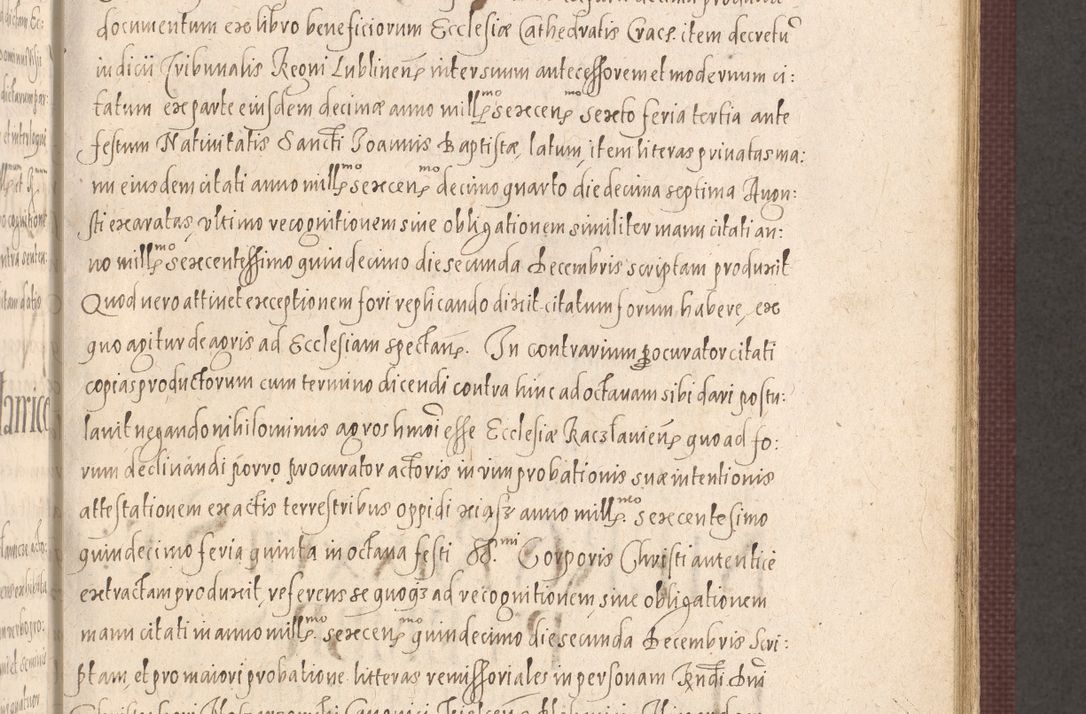 documentum ex libro beneficiorum Ecclesiæ Cathedralis Crac: item decretū
iudicii Tribunalis Regni Lublinen inter suum antecessorem et modernum ci:
tatum ex parte eiusdem decimæ anno mill mo sexcen mo sexto feria tertia ante
festum Natiuitatis Sancti Joannis Baptistæ latum, item literas priuatas ma:
nu eiusdem citati anno mill mo sexcen mo decimo quarto die decima septima Augu:
sti exaratas, vltimo recognitionem siue obligationem similiter manu citati an:
no mill mo sexcentessimo quindecimo die secunda Decembris scriptam produxit
Quod uero attinet exceptionem fori replicando dixit citatum forum habere, ex
quo agitur de agris ad Ecclesiam spectan. In contrarium procurator citati
copias productorum cum termino dicendi contra hinc ad octauam sibi dari postu:
lauit negando nihilominus agros hmōi esse Ecclesiæ Raczlauien quo ad fo:
rum declinandi porro procurator actoris in vim probationis suæ intentionis
attestationem ex actis terrestribus oppidi xiasz anno mill mo. sexcentesimo
quindecimo feria quinta in octaua festi SS. mi Corporis Christi autentice
extractam produxit, referens se quoqz ad recognitionem, siue obligationem
manu citati in anno mill mo. sexcen mo quindecimo die secunda Decembris scri:
ptam, et pro maiori probatione litteras remissoriales in personam Rndi Dni